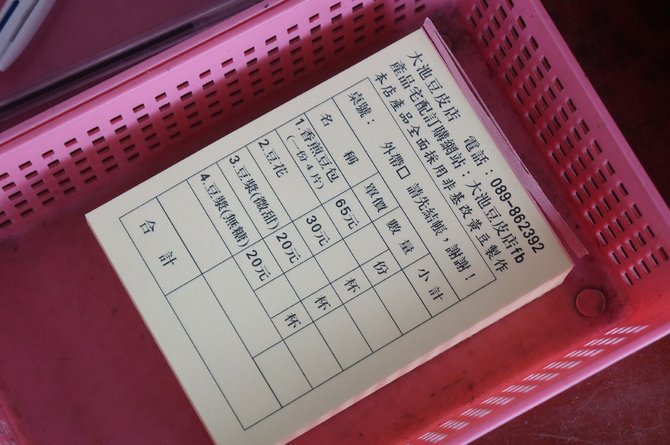 大池豆皮店 電話：089-862392
產品宅配訂購網站：大池豆皮店fb
本店產品全面採用非基改黃豆製作
桌號： 外帶□ 請先結帳，謝謝！
名稱 單價 數量 小計
1.香煎豆包(一份4片) 65元 份
2.豆花 30元 杯
3.豆漿(微甜) 20元 杯
4.豆漿(無糖) 20元 杯
合計